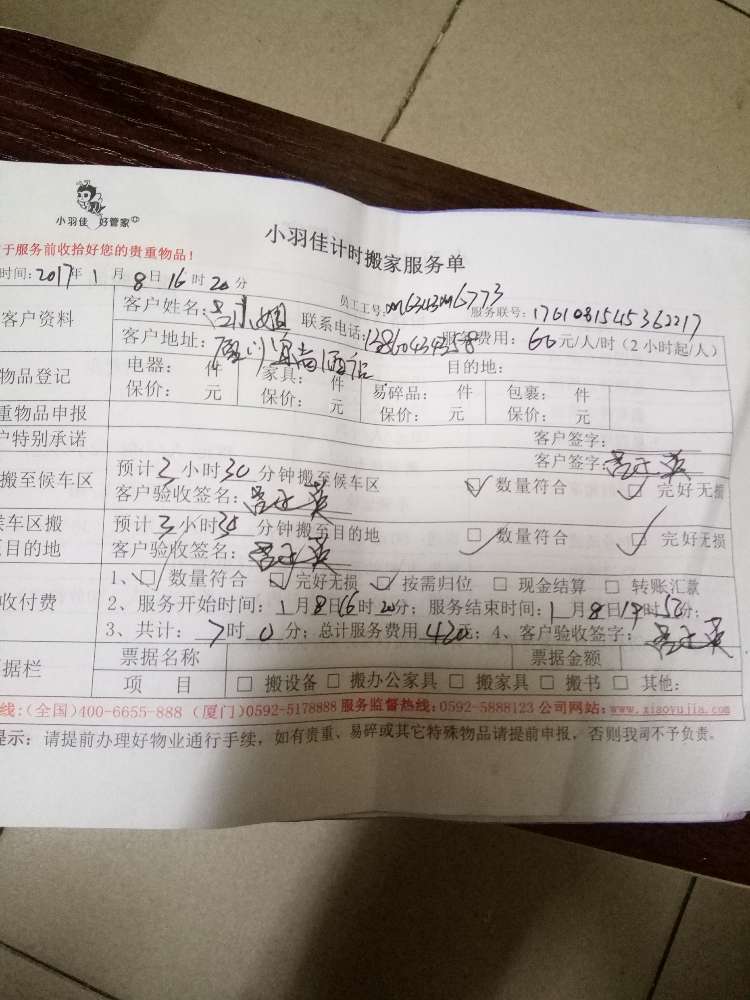 小羽佳 好管家
小羽佳计时搬家服务单
于服务前收拾好您的贵重物品！
时间：2017年1月8日16时20分
员工工号： 服务联号：1761081545362217
客户资料 客户姓名：吕小姐 联系电话：13860434358 服务费用：60元/人/时（2小时起/人）
客户地址： 酒店 目的地：
物品登记 电器： 件 家具： 件 易碎品： 件 包裹： 件
保价： 元 保价： 元 保价： 元 保价： 元
重物品申报
户特别承诺 客户签字：
客户签字：
搬至候车区 预计3小时30分钟搬至候车区 □ 数量符合 □ 完好无损
客户验收签名：
候车区搬 预计3小时30分钟搬至目的地 □ 数量符合 □ 完好无损
目的地 客户验收签名：
收付费 1、□ 数量符合 □ 完好无损 □ 按需归位 □ 现金结算 □ 转账汇款
2、服务开始时间：1月8日16时20分；服务结束时间：1月8日19时50分；
3、共计：7时0分；总计服务费用420元；4、客户验收签字：
据栏 票据名称 票据金额
项 目 □ 搬设备 □ 搬办公家具 □ 搬家具 □ 搬书 □ 其他：
线：(全国)400-6655-888 (厦门)0592-5178888 服务监督热线：0592-5888123 公司网站：www.xiaoyujia.com
提示：请提前办理好物业通行手续，如有贵重、易碎或其它特殊物品请提前申报，否则我司不予负责。